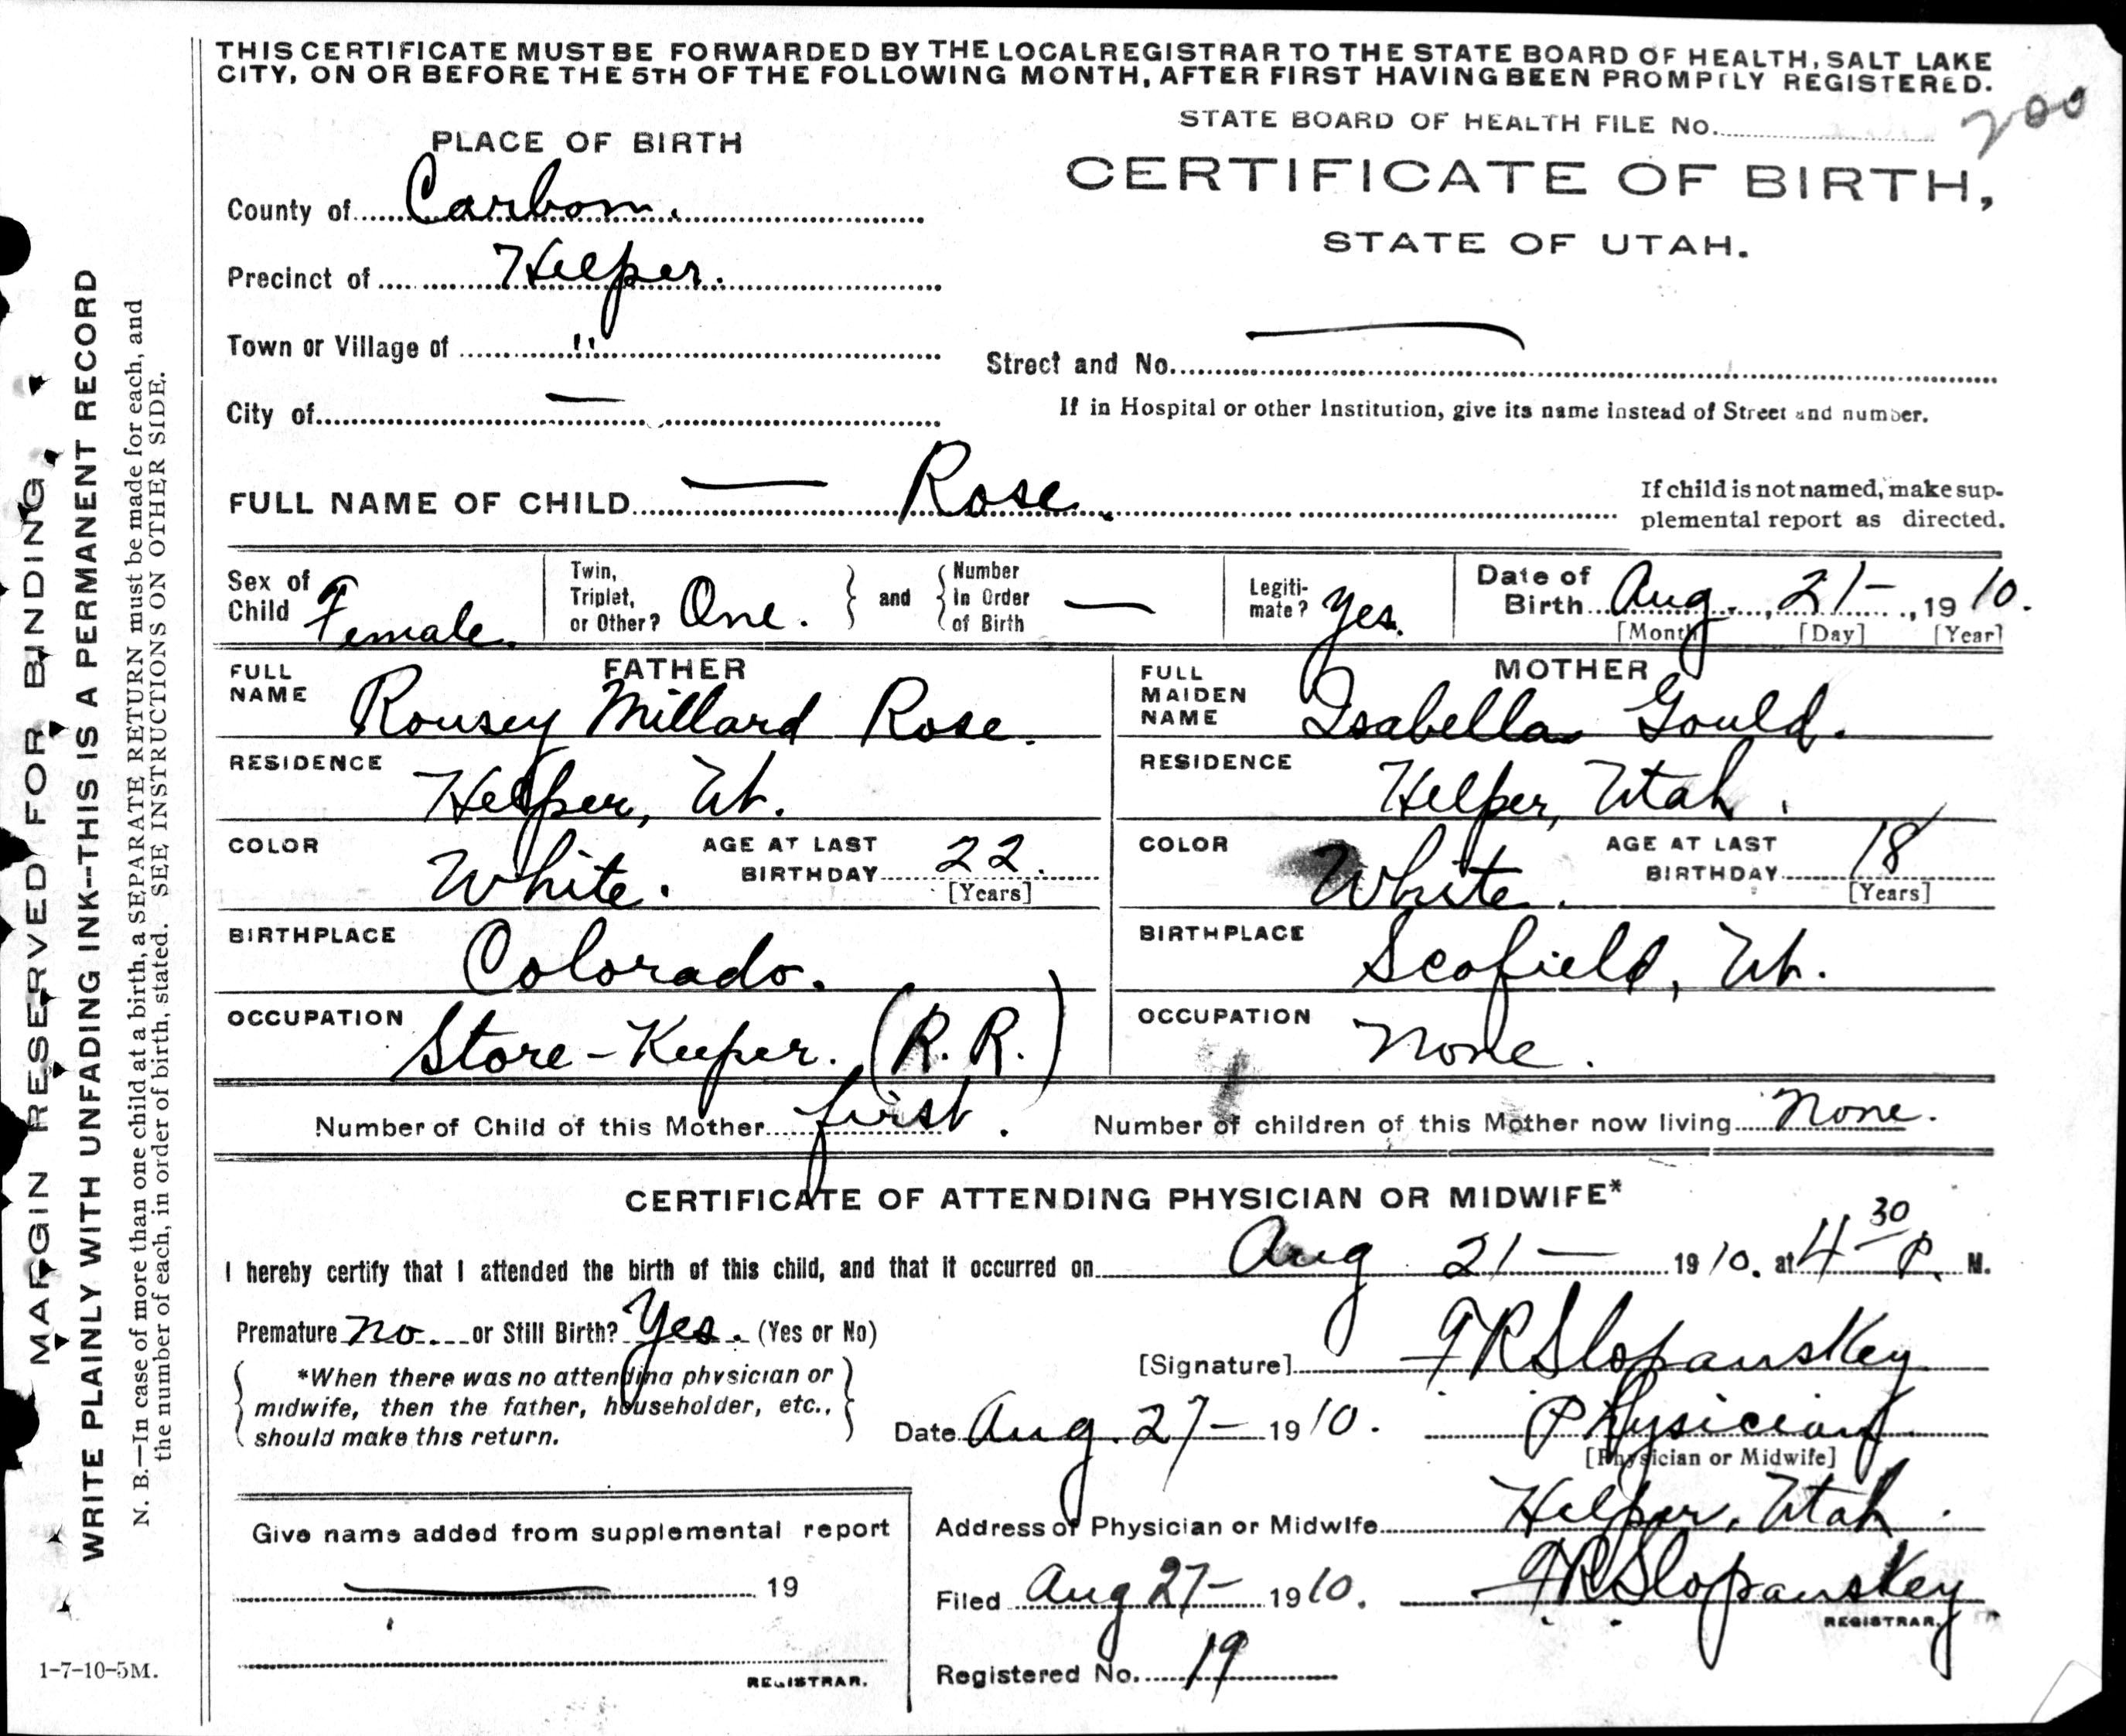 THIS CERTIFICATE MUST BE FORWARDED BY THE LOCAL REGISTRAR TO THE STATE BOARD OF HEALTH, SALT LAKE
CITY, ON OR BEFORE THE 5TH OF THE FOLLOWING MONTH, AFTER FIRST HAVING BEEN PROMPTLY REGISTERED.
STATE BOARD OF HEALTH FILE No. 200
PLACE OF BIRTH
CERTIFICATE OF BIRTH,
STATE OF UTAH.
County of Carbon.
Precinct of Helper.
Town or Village of "
Street and No. —
City of —
If in Hospital or other Institution, give its name instead of Street and number.
FULL NAME OF CHILD — Rose.
If child is not named, make sup-
plemental report as directed.
Sex of Child Female.
Twin, Triplet, or Other? One. and Number In Order of Birth —
Legiti-mate? Yes.
Date of Birth Aug., 21-, 1910.
[Month] [Day] [Year]
FATHER
FULL NAME Rousey Millard Rose.
RESIDENCE Helper, Ut.
COLOR White. AGE AT LAST BIRTHDAY 22. [Years]
BIRTHPLACE Colorado.
OCCUPATION Store-Keeper. (R. R.)
MOTHER
FULL MAIDEN NAME Isabella Gould.
RESIDENCE Helper, Utah.
COLOR White. AGE AT LAST BIRTHDAY 18 [Years]
BIRTHPLACE Scofield, Ut.
OCCUPATION None.
Number of Child of this Mother first. Number of children of this Mother now living None.
CERTIFICATE OF ATTENDING PHYSICIAN OR MIDWIFE*
I hereby certify that I attended the birth of this child, and that it occurred on Aug 21— 1910. at 4 30 P. M.
Premature No. or Still Birth? Yes. (Yes or No)
[Signature] FR Slopanskey
*When there was no attending physician or
midwife, then the father, householder, etc.,
should make this return.
Date Aug. 27- 1910. Physician
[Physician or Midwife]
Address of Physician or Midwife Helper, Utah.
Give name added from supplemental report
— 19
REGISTRAR.
Filed Aug 27- 1910. FR Slopanskey
REGISTRAR.
Registered No. 19
MARGIN RESERVED FOR BINDING
WRITE PLAINLY WITH UNFADING INK--THIS IS A PERMANENT RECORD
N. B.—In case of more than one child at a birth, a SEPARATE RETURN must be made for each, and
the number of each, in order of birth, stated. SEE INSTRUCTIONS ON OTHER SIDE.
1-7-10-5M.